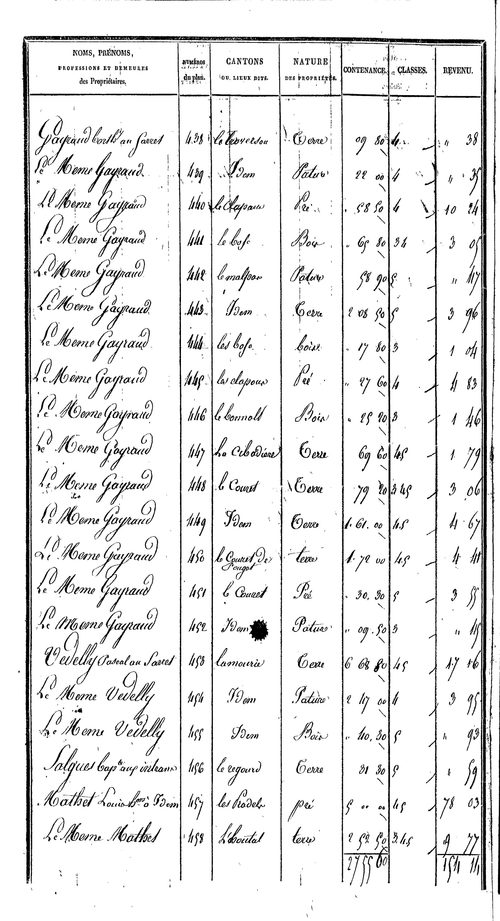 NOMS, PRÉNOMS, PROFESSIONS ET DEMEURES des Propriétaires. NUMÉROS du plan. CANTONS OU LIEUX DITS. NATURE DES PROPRIÉTÉS. CONTENANCE. CLASSES. REVENU.
Gayraud au Sarret 438 Terre 09 80 4 " 38
Le Meme Gayraud 439 Idem Pature 22 00 4 " 35
Le Meme Gayraud 440 Pré " 58 50 4 10 24
Le Meme Gayraud 441 le bosc Bois " 65 80 34 3 05
Le Meme Gayraud 442 Pature 58 90 5 " 47
Le Meme Gayraud 443 Idem Terre 2 08 50 5 3 96
Le Meme Gayraud 444 les bosc bois " 17 80 3 1 04
Le Meme Gayraud 445 Pré " 27 60 4 4 83
Le Meme Gayraud 446 Bois " 25 20 3 1 46
Le Meme Gayraud 447 Terre 69 60 45 1 79
Le Meme Gayraud 448 le Couret Terre 79 20 345 3 06
Le Meme Gayraud 449 Idem Terre 1.61.00 45 4 67
Le Meme Gayraud 450 le Couret de terre 1.72 00 45 4 41
Le Meme Gayraud 451 le Couret Pré " 30.30 5 3 55
Le Meme Gayraud 452 Idem Pature " 09.50 3 " 15
Vedelly Pascal au Sarret 453 lamourié Terre 6 68 80 45 17 16
Le Meme Vedelly 454 Idem Pature 2 17 00 4 3 95
Le Meme Vedelly 455 Idem Bois " 40.30 5 " 93
Salques 456 le regourd Terre 31 30 5 " 59
Mathet Louis à Idem 457 les Pradels pré 5 " " 45 78 03
Le Meme Mathet 458 terre 2 52 50 345 9 77
27 55 60 154 14